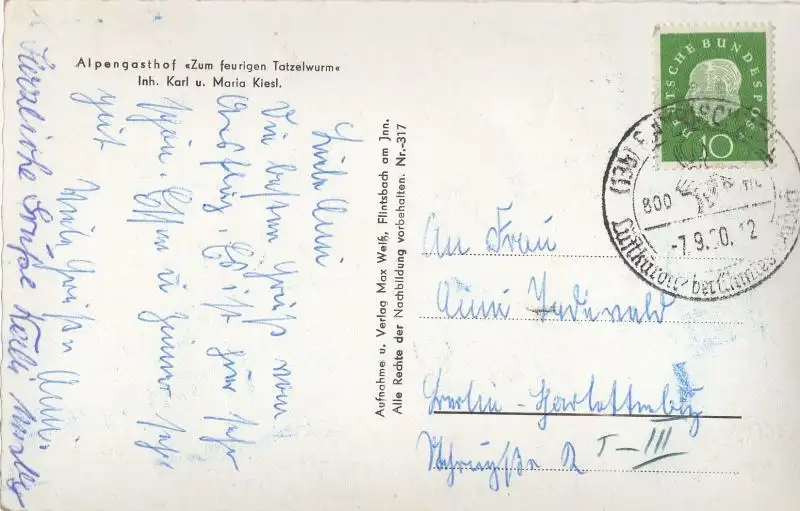 Alpengasthof «Zum feurigen Tatzelwurm«
Inh. Karl u. Maria Kiesl.
Liebe Anni
Die besten Grüße vom
Ausflug. Es ist hier sehr
schön. Essen u Zimmer sehr
gut
Viele Grüße Anni.
Herzliche Grüße
Aufnahme u. Verlag Max Weiß, Flintsbach am Jnn.
Alle Rechte der Nachbildung vorbehalten. Nr.-317
DEUTSCHE BUNDESPOST
10
(13b)
800
-7.9.60.12
Luftkurort
An Frau
Anni
Berlin-Charlottenburg
2 I-III